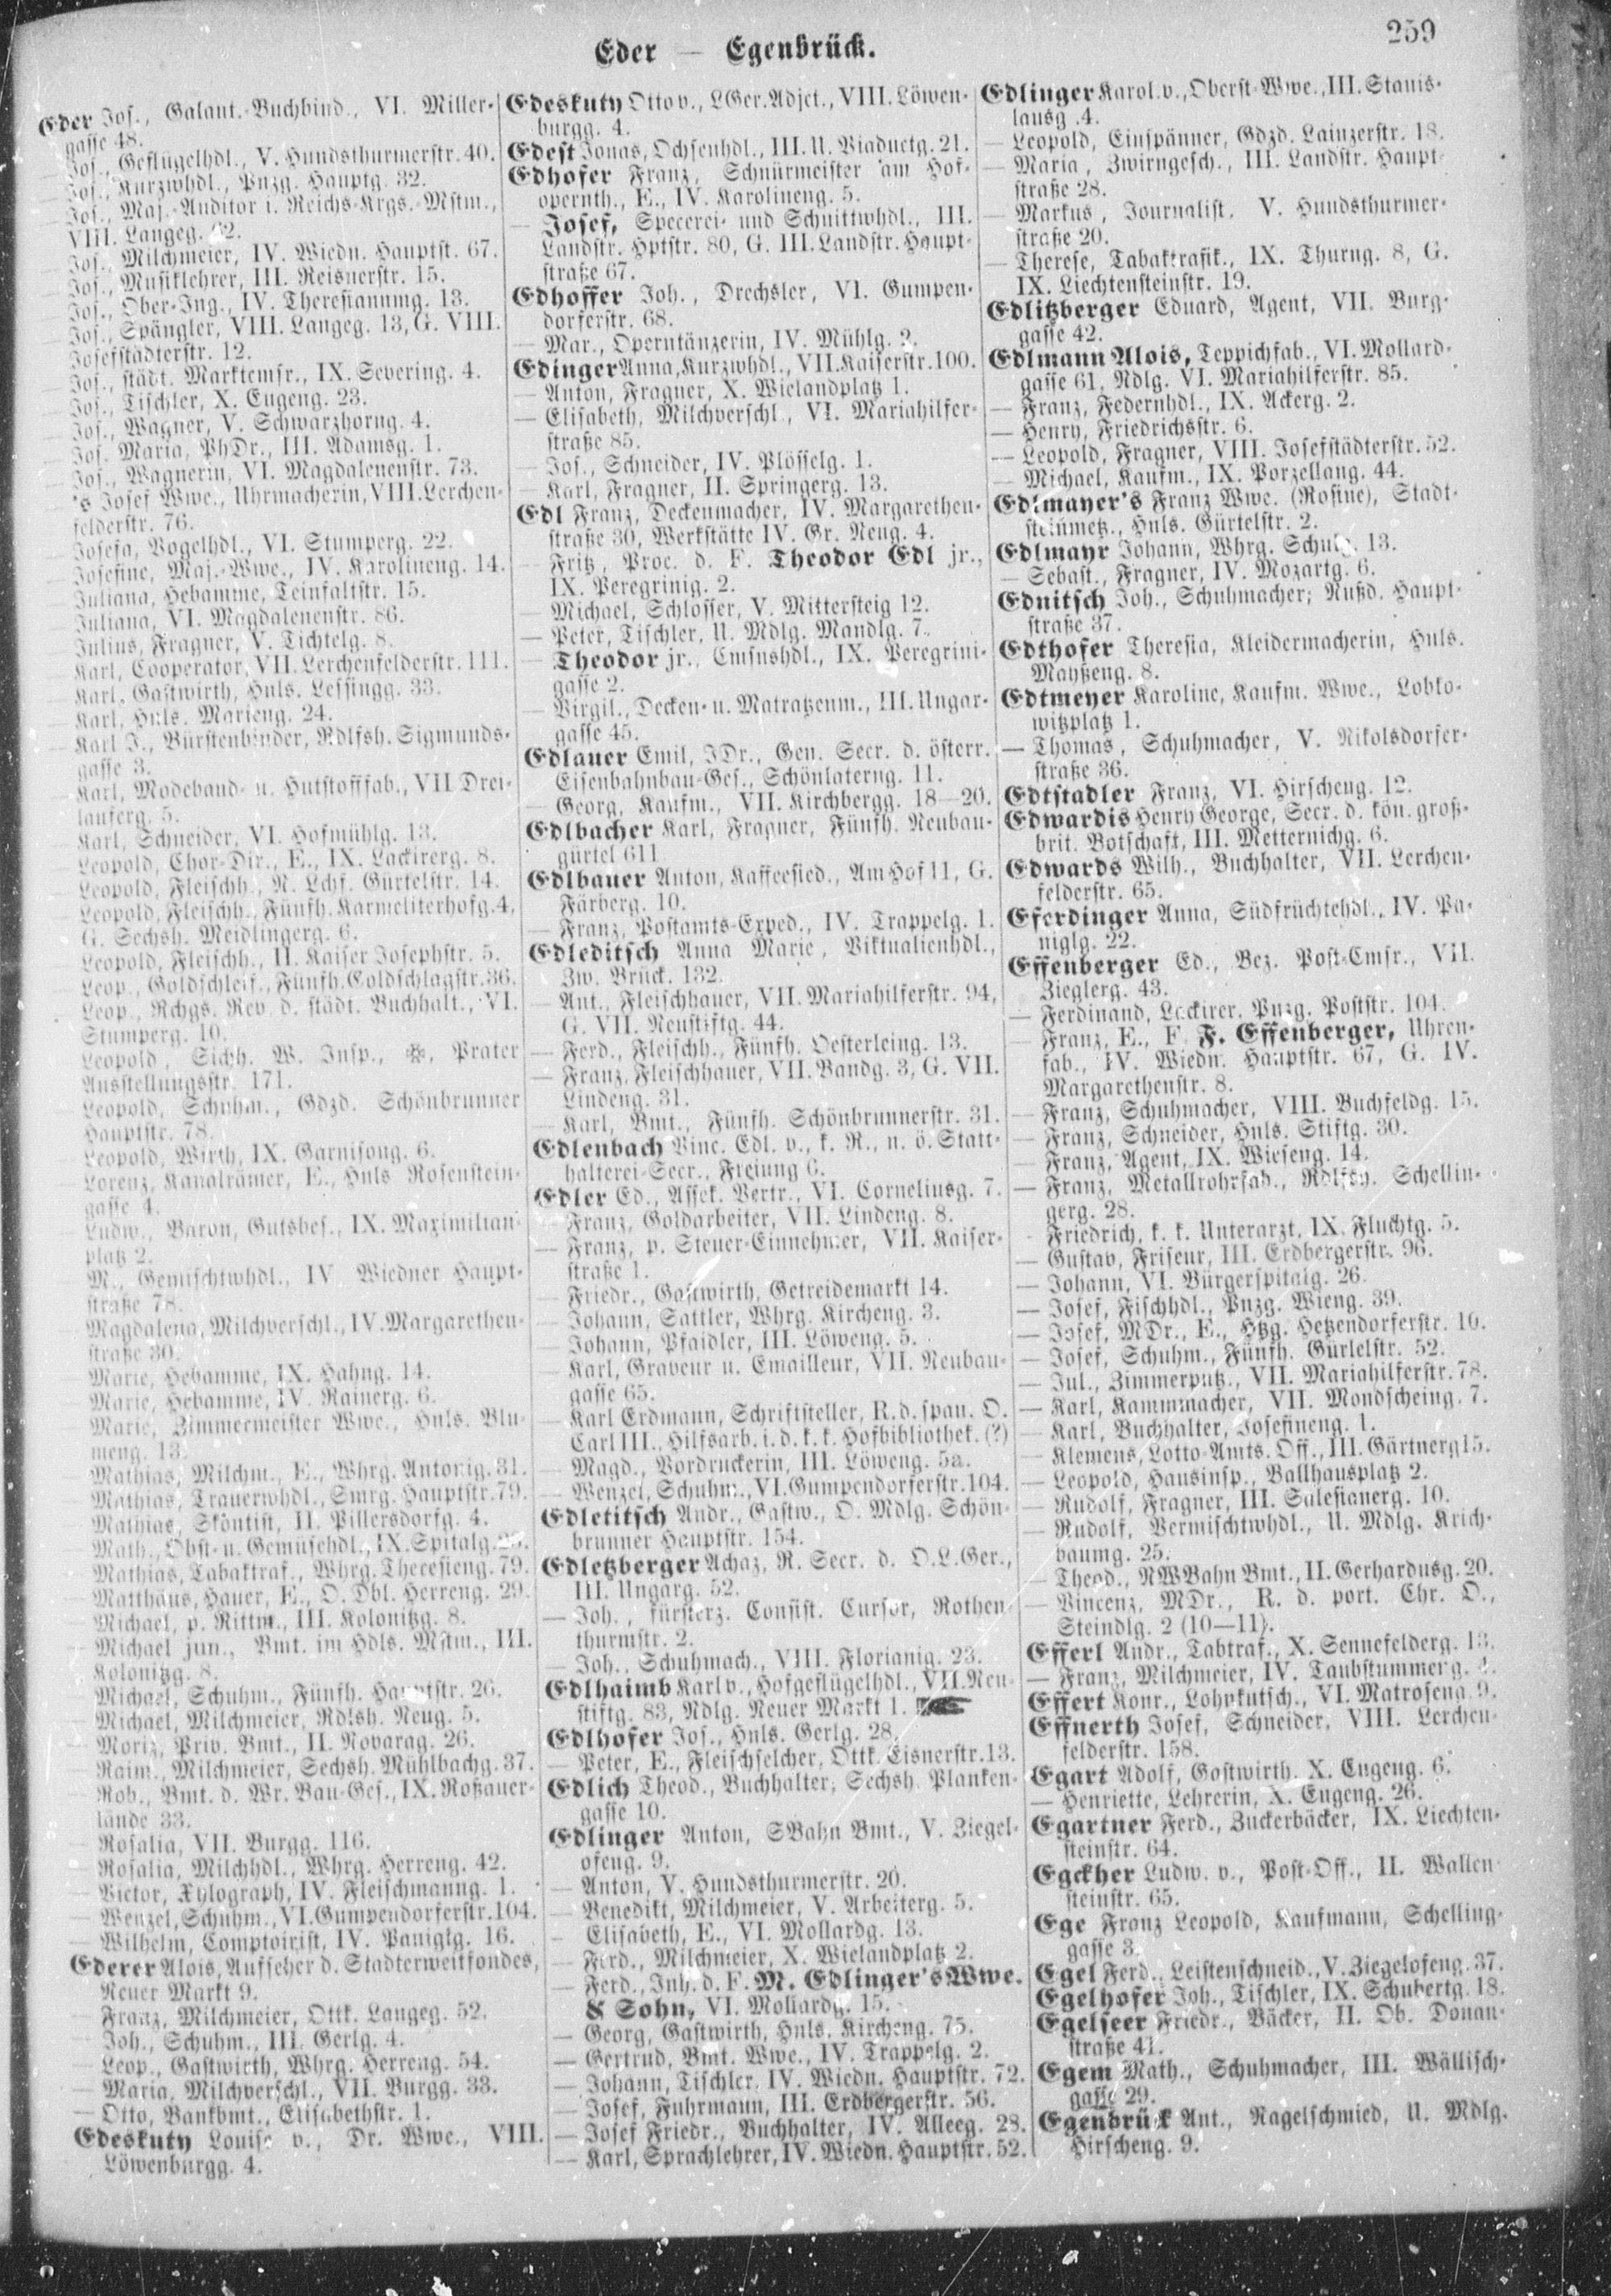 259
Eder — Egenbrück.
Eder Jos., Galant.-Buchbind., VI. Miller-
gasse 48.
Jos., Geflügelhdl., V. Hundsthurmerstr. 40.
Jos., Kurzwhdl., Pnzg. Hauptg. 32.
Jos., Maj.-Auditor i. Reichs-Krgs.-Mstm.,
VIII. Langeg.
Jos., Milchmeier, IV. Wiedn. Hauptst. 67.
Jos., Musiklehrer, III. Reisnerstr. 15.
Jos., Ober-Ing., IV. Theresianumg. 13.
Jos., Spängler, VIII. Langeg. 13, G. VIII.
Josefstädterstr. 12.
Jos., städt. Marktcmsr., IX. Severing. 4.
Jos., Tischler, X. Eugeng. 23.
Jos., Wagner, V. Schwarzhorng. 4.
Jos. Maria, PhDr., III. Adamsg. 1.
Jos., Wagnerin, VI. Magdalenenstr. 73.
's Josef Wwe., Uhrmacherin, VIII. Lerchen-
felderstr. 76.
Josefa, Vogelhdl., VI. Stumperg. 22.
Josefine, Maj.-Wwe., IV. Karolineng. 14.
Juliana, Hebamme, Teinfaltstr. 15.
Juliana, VI. Magdalenenstr. 86.
Julius, Fragner, V. Tichtelg. 8.
Karl, Cooperator, VII. Lerchenfelderstr. 111.
Karl, Gastwirth, Hnls. Lessingg. 33.
Karl, Hnls. Marieng. 24.
Karl J., Bürstenbinder, Rdlfsh. Sigmunds-
gasse 3.
Karl, Modeband- u. Hutstofffab., VII Drei-
lauferg. 5.
Karl, Schneider, VI. Hofmühlg. 13.
Leopold, Chor-Dir., E., IX. Lackirerg. 8.
Leopold, Fleischh., N. Lchf. Gürtelstr. 14.
Leopold, Fleischh., Fünfh. Karmeliterhofg. 4,
G. Sechsh. Meidlingerg. 6.
Leopold, Fleischh., II. Kaiser Josephstr. 5.
Leop., Goldschleif., Fünfh. Goldschlagstr. 36.
Leop., Rchgs. Rev. d. städt. Buchhalt., VI.
Stumperg. 10.
Leopold, Sichh. W. Insp., ※, Prater
Ausstellungsstr. 171.
Leopold, Schuhm., Gdzd. Schönbrunner
Hauptstr. 78.
Leopold, Wirth, IX. Garnisong. 6.
Lorenz, Kanalrämer, E., Hnls Rosenstein-
gasse 4.
Ludw., Baron, Gutsbes., IX. Maximilian-
platz 2.
M., Gemischtwhdl., IV. Wiedner Haupt-
straße 78.
Magdalena, Milchverschl., IV. Margarethen-
straße 30.
Marie, Hebamme, IX. Hahng. 14.
Marie, Hebamme, IV. Rainerg. 6.
Marie, Zimmermeister Wwe., Hnls. Blu-
meng. 13.
Mathias, Milchm., E., Whrg. Antonig. 31.
Mathias, Trauerwhdl., Smrg. Hauptstr. 79.
Mathias, Skontist, II. Pillersdorfg. 4.
Math., Obst- u. Gemüsehdl., IX. Spitalg.
Mathias, Tabaktraf., Whrg. Theresieng. 79.
Matthäus, Hauer, E., O. Dbl. Herreng. 29.
Michael, p. Rittm., III. Kolonitzg. 8.
Michael jun., Bmt. im Hdls. Mstm., III.
Kolonitzg. 8.
Michael, Schuhm., Fünfh. Hauptstr. 26.
Michael, Milchmeier, Rdlsh. Neug. 5.
Moriz, Priv. Bmt., II. Novarag. 26.
Raim., Milchmeier, Sechsh. Mühlbachg. 37.
Rob., Bmt. d. Wr. Bau-Ges., IX. Roßauer-
lände 33.
— Rosalia, VII. Burgg. 116.
— Rosalia, Milchhdl., Whrg. Herreng. 42.
— Victor, Xylograph, IV. Fleischmanng. 1.
— Wenzel, Schuhm., VI. Gumpendorferstr. 104.
— Wilhelm, Comptoirist, IV. Paniglg. 16.
Ederer Alois, Aufseher d. Stadterweitfondes,
Neuer Markt 9.
— Franz, Milchmeier, Ottk. Langeg. 52.
Joh., Schuhm., III. Gerlg. 4.
— Leop., Gastwirth, Whrg. Herreng. 54.
— Maria, Milchverschl., VII. Burgg. 33.
— Otto, Bankbmt., Elisabethstr. 1.
Edeskuty Louise v., Dr. Wwe., VIII.
Löwenburgg. 4.
Edeskuty Otto v., LGer. Adjct., VIII. Löwen-
burgg. 4.
Edest Jonas, Ochsenhdl., III. U. Viaductg. 21.
Edhofer Franz, Schnürmeister am Hof-
opernth., E., IV. Karolineng. 5.
— Josef, Specerei- und Schnittwhdl., III.
Landstr. Hptstr. 80, G. III. Landstr. Haupt-
straße 67.
Edhoffer Joh., Drechsler, VI. Gumpen-
dorferstr. 68.
— Mar., Operntänzerin, IV. Mühlg. 2.
Edinger Anna, Kurzwhdl., VII. Kaiserstr. 100.
— Anton, Fragner, X. Wielandplatz 1.
— Elisabeth, Milchverschl., VI. Mariahilfer-
straße 85.
— Jos., Schneider, IV. Plösselg. 1.
— Karl, Fragner, II. Springerg. 13.
Edl Franz, Deckenmacher, IV. Margarethen-
straße 30, Werkstätte IV. Gr. Neug. 4.
— Fritz, Proc. d. F. Theodor Edl jr.,
IX. Peregrinig. 2.
— Michael, Schlosser, V. Mittersteig 12.
— Peter, Tischler, U. Mdlg. Mandlg. 7.
— Theodor jr., Cmsnshdl., IX. Peregrini-
gasse 2.
— Virgil., Decken- u. Matratzenm., III. Ungar-
gasse 45.
Edlauer Emil, JDr., Gen. Secr. d. österr.
Eisenbahnbau-Ges., Schönlaterng. 11.
— Georg, Kaufm., VII. Kirchbergg. 18—20.
Edlbacher Karl, Fragner, Fünfh. Neubau-
gürtel 611
Edlbauer Anton, Kaffeesied., Am Hof 11, G.
Färberg. 10.
— Franz, Postamts-Exped., IV. Trappelg. 1.
Edleditsch Anna Marie, Viktualienhdl.,
Zw. Brück. 132.
— Ant., Fleischhauer, VII. Mariahilferstr. 94,
G. VII. Neustiftg. 44.
— Ferd., Fleischh., Fünfh. Oesterleing. 13.
— Franz, Fleischhauer, VII. Bandg. 3, G. VII.
Lindeng. 31.
— Karl, Bmt., Fünfh. Schönbrunnerstr. 31.
Edlenbach Vinc. Edl. v., k. R., n. ö. Statt-
halterei-Secr., Freiung 6.
Edler Ed., Assek. Vertr., VI. Corneliusg. 7.
— Franz, Goldarbeiter, VII. Lindeng. 8.
— Franz, p. Steuer-Einnehmer, VII. Kaiser-
straße 1.
— Friedr., Gastwirth, Getreidemarkt 14.
— Johann, Sattler, Whrg. Kircheng. 3.
— Johann, Pfaidler, III. Löweng. 5.
— Karl, Graveur u. Emailleur, VII. Neubau-
gasse 65.
— Karl Erdmann, Schriftsteller, R. d. span. O.
Carl III., Hilfsarb. i. d. k. k. Hofbibliothek. (?)
— Magd., Vordruckerin, III. Löweng. 5a.
— Wenzel, Schuhm., VI. Gumpendorferstr. 104.
Edletitsch Andr., Gastw., O. Mdlg. Schön-
brunner Hauptstr. 154.
Edletzberger Achaz, R. Secr. d. O.L.Ger.,
III. Ungarg. 52.
— Joh., fürsterz. Consist. Cursor, Rothen-
thurmstr. 2.
— Joh., Schuhmach., VIII. Florianig. 23.
Edlhaimb Karl v., Hofgeflügelhdl., VII. Neu-
stiftg. 83, Ndlg. Neuer Markt 1.
Edlhofer Jos., Hnls. Gerlg. 28.
— Peter, E., Fleischselcher, Ottk. Eisnerstr. 13.
Edlich Theod., Buchhalter, Sechsh. Planken-
gasse 10.
Edlinger Anton, SBahn Bmt., V. Ziegel-
ofeng. 9.
— Anton, V. Hundsthurmerstr. 20.
— Benedikt, Milchmeier, V. Arbeiterg. 5.
— Elisabeth, E., VI. Mollardg. 13.
— Ferd., Milchmeier, X. Wielandplatz 2.
— Ferd., Inh. d. F. M. Edlinger's Wwe.
& Sohn, VI. Mollardg. 15.
— Georg, Gastwirth, Hnls. Kircheng. 75.
— Gertrud, Bmt. Wwe., IV. Trappelg. 2.
— Johann, Tischler, IV. Wiedn. Hauptstr. 72.
— Josef, Fuhrmann, III. Erdbergerstr. 56.
— Josef Friedr., Buchhalter, IV. Alleeg. 28.
— Karl, Sprachlehrer, IV. Wiedn. Hauptstr. 52.
Edlinger Karol. v., Oberst-Wwe., III. Stanis-
lausg .4.
— Leopold, Einspänner, Gdzd. Lainzerstr. 18.
— Maria, Zwirngesch., III. Landstr. Haupt-
straße 28.
— Markus, Journalist, V. Hundsthurmer-
straße 20.
— Therese, Tabaktrafik., IX. Thurng. 8, G.
IX. Liechtensteinstr. 19.
Edlitzberger Eduard, Agent, VII. Burg-
gasse 42.
Edlmann Alois, Teppichfab., VI. Mollard-
gasse 61, Ndlg. VI. Mariahilferstr. 85.
— Franz, Federnhdl., IX. Ackerg. 2.
— Henry, Friedrichsstr. 6.
— Leopold, Fragner, VIII. Josefstädterstr. 52.
— Michael, Kaufm., IX. Porzellang. 44.
Edlmayer's Franz Wwe. (Rosine), Stadt-
steinmetz., Hnls. Gürtelstr. 2.
Edlmayr Johann, Whrg. Schulg. 13.
— Sebast., Fragner, IV. Mozartg. 6.
Ednitsch Joh., Schuhmacher; Nußd. Haupt-
straße 37.
Edthofer Theresia, Kleidermacherin, Hnls.
Mayßeng. 8.
Edtmeyer Karoline, Kaufm. Wwe., Lobko-
witzplatz 1.
— Thomas, Schuhmacher, V. Nikolsdorfer-
straße 36.
Edtstadler Franz, VI. Hirscheng. 12.
Edwardis Henry George, Secr. d. kön. groß-
brit. Botschaft, III. Metternichg. 6.
Edwards Wilh., Buchhalter, VII. Lerchen-
felderstr. 65.
Eferdinger Anna, Südfrüchtehdl., IV. Pa-
niglg. 22.
Effenberger Ed., Bez. Post-Cmsr., VII.
Zieglerg. 43.
— Ferdinand, Lackirer, Pnzg. Poststr. 104.
— Franz, E., F. F. Effenberger, Uhren-
fab., IV. Wiedn. Hauptstr. 67, G. IV.
Margarethenstr. 8.
— Franz, Schuhmacher, VIII. Buchfeldg. 15.
— Franz, Schneider, Hnls. Stiftg. 30.
— Franz, Agent, IX. Wieseng. 14.
— Franz, Metallrohrfab., Rdlfsh. Schellin-
gerg. 28.
- Friedrich, k. k. Unterarzt, IX. Fluchtg. 5.
— Gustav, Friseur, III. Erdbergerstr. 96.
— Johann, VI. Bürgerspitalg. 26.
— Josef, Fischhdl., Pnzg. Wieng. 39.
— Josef, MDr., E., Htzg. Hetzendorferstr. 10.
— Josef, Schuhm., Fünfh. Gürtelstr. 52.
— Jul., Zimmerputz., VII. Mariahilferstr. 78.
— Karl, Kammmacher, VII. Mondscheing. 7.
— Karl, Buchhalter, Josefineng. 1.
— Klemens, Lotto-Amts. Off., III. Gärtnerg 15.
— Leopold, Hausinsp., Ballhausplatz 2.
— Rudolf, Fragner, III. Salesianerg. 10.
— Rudolf, Vermischtwhdl., U. Mdlg. Krich-
baumg. 25.
— Theod., NWBahn Bmt., II. Gerhardusg. 20.
— Vincenz, MDr., R. d. port. Chr. O.,
Steindlg. 2 (10—11).
Efferl Andr., Tabtraf., X. Sennefelderg. 13.
— Franz, Milchmeier, IV. Taubstummerg.
Effert Konr., Lohnkutsch., VI. Matroseng. 9.
Effnerth Josef, Schneider, VIII. Lerchen-
felderstr. 158.
Egart Adolf, Gastwirth. X. Eugeng. 6.
— Henriette, Lehrerin, X. Eugeng. 26.
Egartner Ferd., Zuckerbäcker, IX. Liechten-
steinstr. 64.
Egckher Ludw. v., Post-Off., II. Wallen-
steinstr. 65.
Ege Franz Leopold, Kaufmann, Schelling-
gasse 3.
Egel Ferd., Leistenschneid., V. Ziegelofeng. 37.
Egelhofer Joh., Tischler, IX. Schubertg. 18.
Egelseer Friedr., Bäcker, II. Ob. Donau-
straße 41.
Egem Math., Schuhmacher, III. Wällisch-
gasse 29.
Egenbrück Ant., Nagelschmied, U. Mdlg.
Hirscheng. 9.